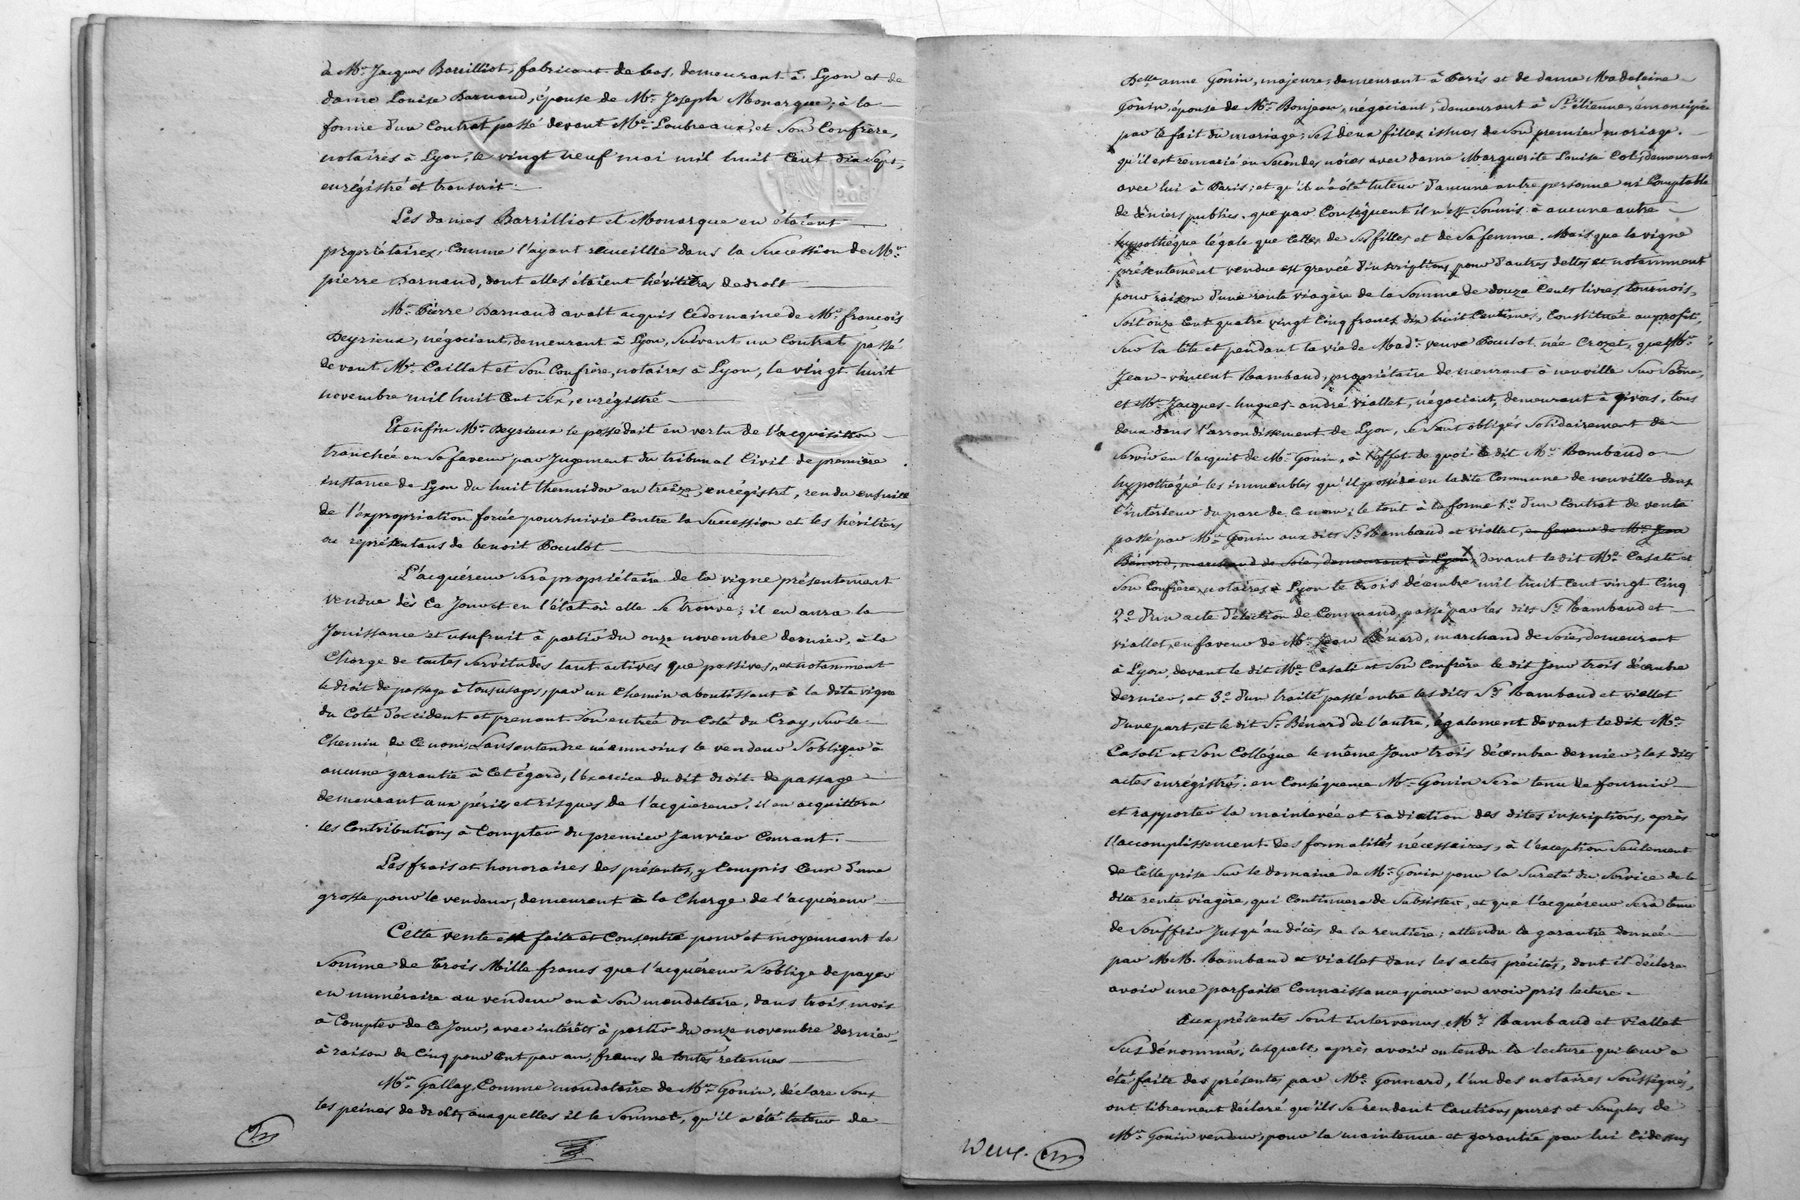 de Mr. Jacques Barrilliot, fabricant de bas, demeurant à Lyon et de
dame Louise Barnaud, épouse de Mr. Joseph Monarque, à la
forme d'un Contrat passé devant Me. Laubreaux et Son Confrère,
notaires à Lyon, le vingt neuf mai mil huit Cent dix Sept,
enrégistré et transcrit.
Les dames Barrilliot et Monarque en étaient
propriétaires, Comme l'ayant recueillie dans la Succession de Mr.
pierre Barnaud, dont elles étaient héritières de droit
Mr. Pierre Barnaud avait acquis ce domaine de Mr. françois
Peyrieux, négociant, demeurant à Lyon, Suivant un Contrat passé
devant Me. Caillat et Son Confrère, notaires à Lyon, le vingt huit
novembre mil huit Cent Six, enrégistré
Et enfin Mr. Peyrieux le possedait en vertu de l'acquisition
tranchée en Sa faveur par Jugement du tribunal Civil de première
instance de Lyon du huit thermidor an treize, enrégistré, rendu ensuite
de l'expropriation forcée poursuivie Contre la Succession et les héritiers
ou représentans de benoit Poculot
L'acquéreur Sera propriétaire de la vigne présentement
vendue dès Ce Jour et en l'état où elle Se trouve; il en aura la
Jouissance et usufruit à partir du onze novembre dernier, à la
Charge de toutes Servitudes tant actives que passives, et notamment
le droit de passage à tous usages, par un Chemin aboutissant à la dite vigne
du Coté d'occident et prenant Son entrée du Coté du Cray, Sur le
Chemin de Ce nom, Sans entendre néanmoins le vendeur S'obliger à
aucune garantie à Cet égard, l'Exercice du dit droit de passage
demeurant aux périls et risques de l'acquéreur. il en acquittera
les Contributions à Compter du premier Janvier Courant.
Les frais et honoraires des présentes, y Compris Ceux d'une
grosse pour le vendeur, demeurent à la Charge de l'acquéreur
Cette vente est faite et Consentie pour et moyennant la
Somme de Trois Mille francs que l'acquéreur S'oblige de payer
en numéraire au vendeur ou à Son mandataire, dans trois mois
à Compter de Ce Jour, avec intérêts à partir du onze novembre dernier,
à raison de Cinq pour Cent par an, francs de toutes retenues
Mr. Gallay, Comme mandataire de Mr. Gonin, déclare Sous
les peines de droit, auxquelles il le Soumet, qu'il a été tuteur de
Delle. anne Gonin, majeure, demeurant à Paris et de dame Madelaine
Gonin, épouse de Mr. Bonjean, négociant, demeurant à St. étienne, émancipée
par le fait du mariage; Ses deux filles issues de Son premier mariage.
qu'il est remarié en Secondes nôces avec dame Marguerite Louise Cot, demeurant
avec lui à Paris; et qu'il n'a été tuteur d'aucune autre personne ni Comptable
de deniers publics. que par Conséquent il n'est Soumis à aucune autre
hypothéque légale que Celles de Ses filles et de Sa femme. Mais que la vigne
présentement vendue est gravée d'inscriptions pour d'autres dettes et notamment
pour raison d'une rente viagère de la Somme de douze Cents livres tournois,
Soit onze Cent quatre vingt Cinq francs dix huit Centimes, Constituée au profit,
Sur la tête et pendant la vie de Made. veuve Poculot née Crozet, que Mr.
Jean-vincent Rambaud, propriétaire demeurant à neuville Sur Saône,
et Mr. Jacques-hugues-andré Viallet, négociant, demeurant à givors, tous
deux dans l'arrondissement de Lyon, Se Sont obligés Solidairement de
Servir en l'acquit de Mr. Gonin, à l'effet de quoi le dit Mr. Rambaud a
hypothéqué les immeubles qu'il possède en la dite Commune de neuville dans
l'intérieur du parc de Ce nom; le tout à la forme 1°. d'un Contrat de vente
passé par Mr. Gonin aux dits Srs. Rambaud et viallet, en faveur de Mr. Jean
Bénard, marchand de Soie, demeurant à Lyon, devant le dit Me. Casati et
Son Confrère, notaires à Lyon le trois décembre mil huit Cent vingt Cinq
2°. d'un acte d'élection de Command, passé par les dits Srs. Rambaud et
viallet, en faveur de Mr. Jean Bénard, marchand de Soie, demeurant
à Lyon, devant le dit Me. Casati et Son Confrère le dit Jour trois décembre
dernier; et 3°. d'un traité passé entre les dits Srs. Rambaud et viallet
d'une part, et le dit Sr. Bénard de l'autre, également devant le dit Me.
Casati et Son Collégue le même Jour trois décembre dernier; les dits
actes enrégistrés. en Conséquence Mr. Gonin Sera tenu de fournir
et rapporter la mainlevée et radiation des dites inscriptions, après
l'accomplissement des formalités nécessaires, à l'exception Seulement
de Celle prise Sur le domaine de Mr. Gonin pour la Sureté du Service de la
dite rente viagère, qui Continuera de Subsister, et que l'acquéreur Sera tenu
de Souffrir Jusqu'au décès de la rentière; attendu la garantie donnée
par M.M. Rambaud et viallet dans les actes précités, dont il déclare
avoir une parfaite Connaissance, pour en avoir pris lecture.
Aux présentes Sont intervenus Mrs. Rambaud et viallet
Susdénommés, lesquels, après avoir entendu la lecture qui leur a
été faite des présentes par Me. Gonnard, l'un des notaires Soussignés,
ont librement déclaré qu'ils Se rendent Cautions pures et Simples de
Mr. Gonin vendeur, pour la maintenue et garantie par lui Cidessus